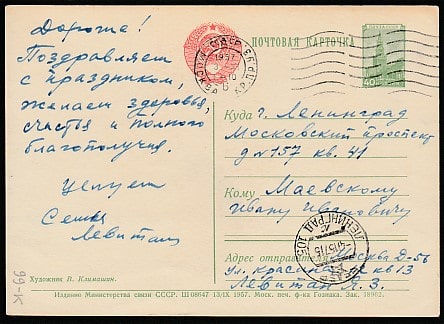 Дорогие!
Поздравляем
с праздником,
желаем здоровья,
счастья и полного
благополучия.
Целуем
Семья
Левитан
Художник В. Климашин.
ПОЧТОВАЯ КАРТОЧКА
40
Куда г. Ленинград
Московский проспект
д № 157 кв. 41
Кому Маевскому
Ивану Ивановичу
Адрес отправителя: Москва Д-56
ул. Красина кв 13
Левитан Я. З.
МОСКВА
1957
ЛЕНИНГРАД 105
Издание Министерства связи СССР. Ш 08647 13/IX 1957. Моск. печ. ф-ка Гознака. Зак. 18902.
99-К